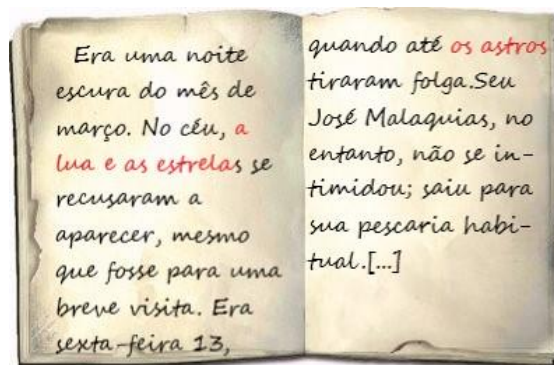 Era uma noite
escura do mês de
março. No céu, a
lua e as estrelas se
recusaram a
aparecer, mesmo
que fosse para uma
breve visita. Era
sexta-feira 13,
quando até os astros
tiraram folga.Seu
José Malaquias, no
entanto, não se in-
timidou; saiu para
sua pescaria habi-
tual.[...]